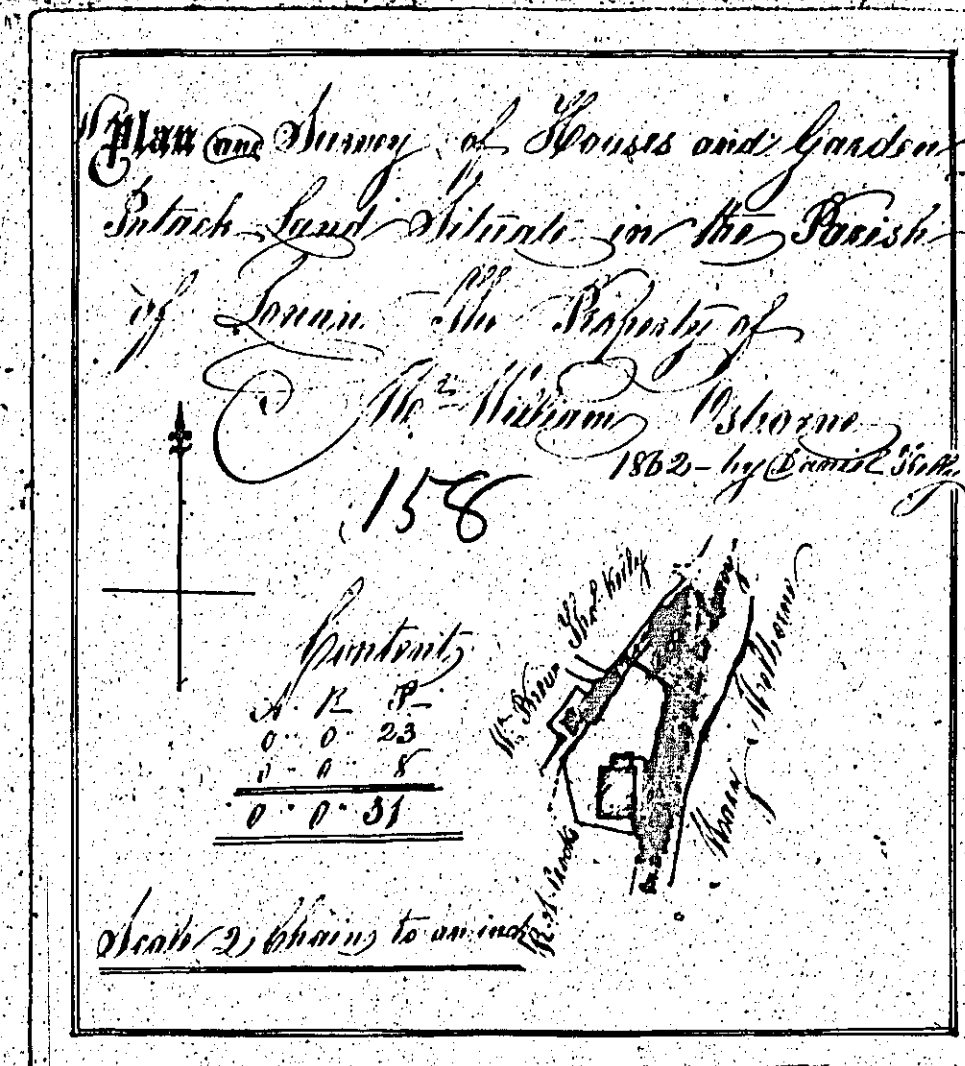 Plan and Survey of Houses and Garden
Intack Land Situate in the Parish
of Lonan The Property of
Mr William Osborne
1862 - by Daniel
158
Content
A. R. P.
0 .. 0 .. 23
0 .. 0 .. 8
0 .. 0 .. 31
Scale 2 Chains to an inch
Thos. Kelly
Wm.